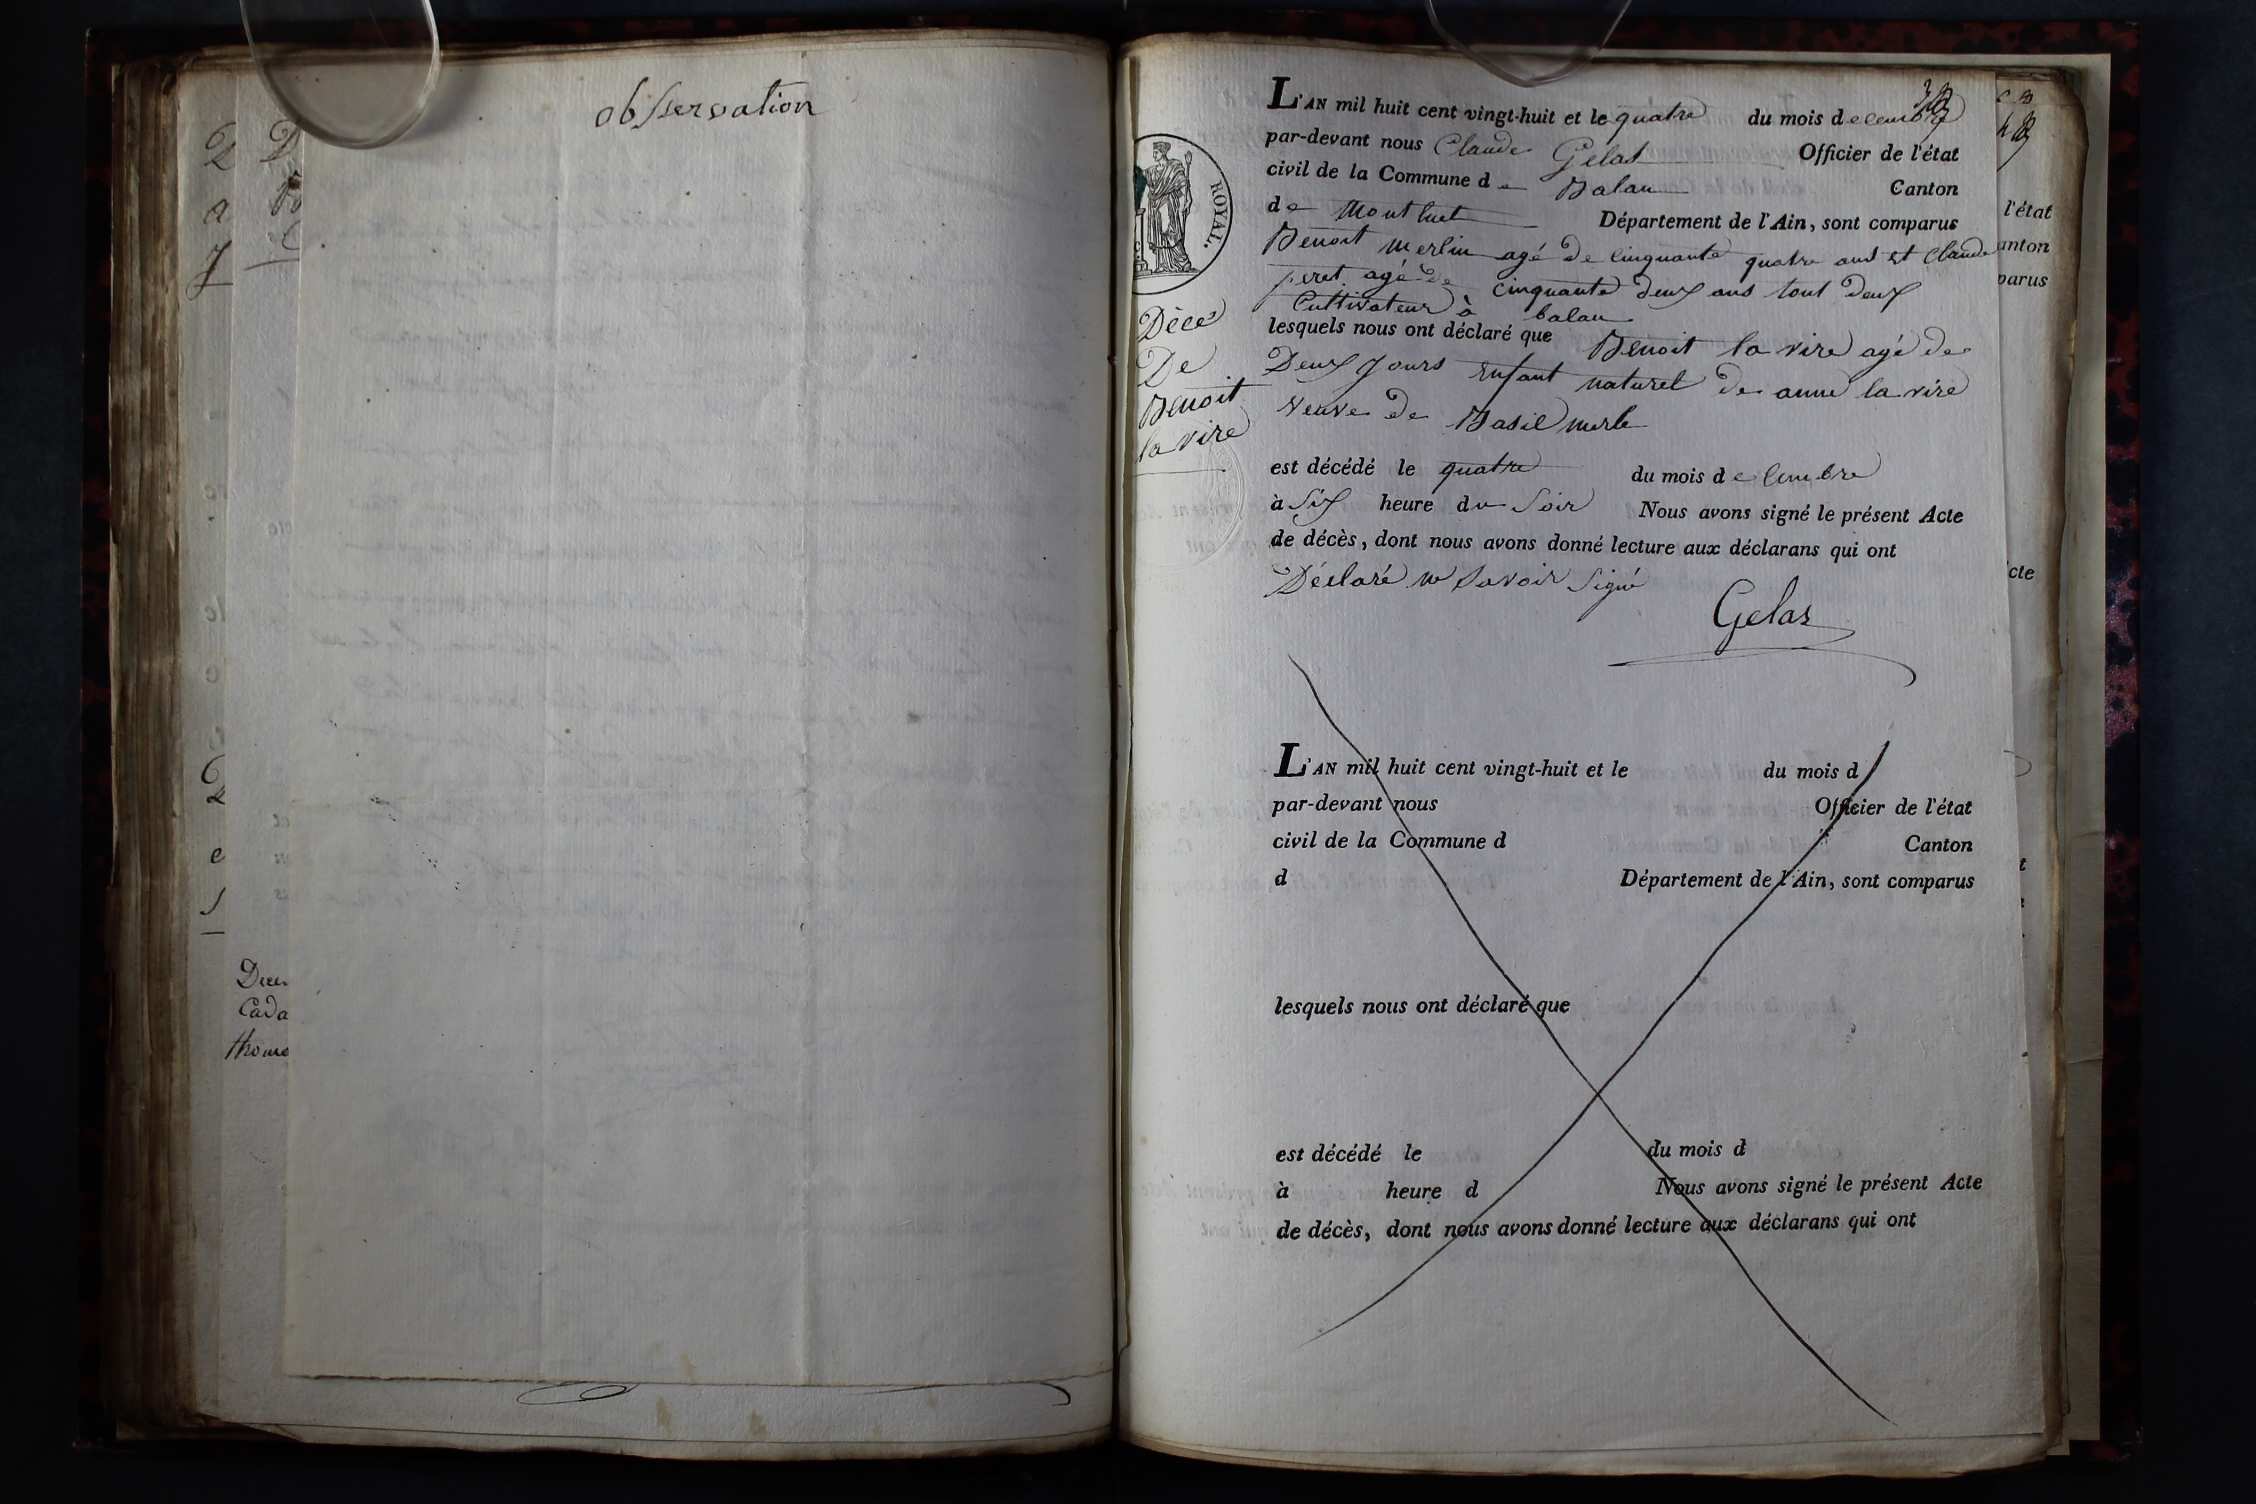 observation
ROYAL.
Décè
De
Benoit
la vire
L'AN mil huit cent vingt-huit et le quatre du mois decembre
par-devant nous Claude Gelas Officier de l'état
civil de la Commune de Balan Canton
de Montluel Département de l'Ain, sont comparus
Benoit merlin agé de cinquante quatre ans et Claude
peret agé de cinquante deux ans tout deux
Cultivateur à balan
lesquels nous ont déclaré que Benoit la vire agé de
Deux Jours enfant naturel de anne la vire
veuve de Basile merle
est décédé le quatre du mois de cembre
à Six heure du Soir Nous avons signé le présent Acte
de décès, dont nous avons donné lecture aux déclarans qui ont
Déclaré ne Savoir Signé
Gelas
L'AN mil huit cent vingt-huit et le du mois d
par-devant nous Officier de l'état
civil de la Commune d Canton
d Département de l'Ain, sont comparus
lesquels nous ont déclaré que
est décédé le du mois d
à heure d Nous avons signé le présent Acte
de décès, dont nous avons donné lecture aux déclarans qui ont
l'état
anton
parus
cte
Cada